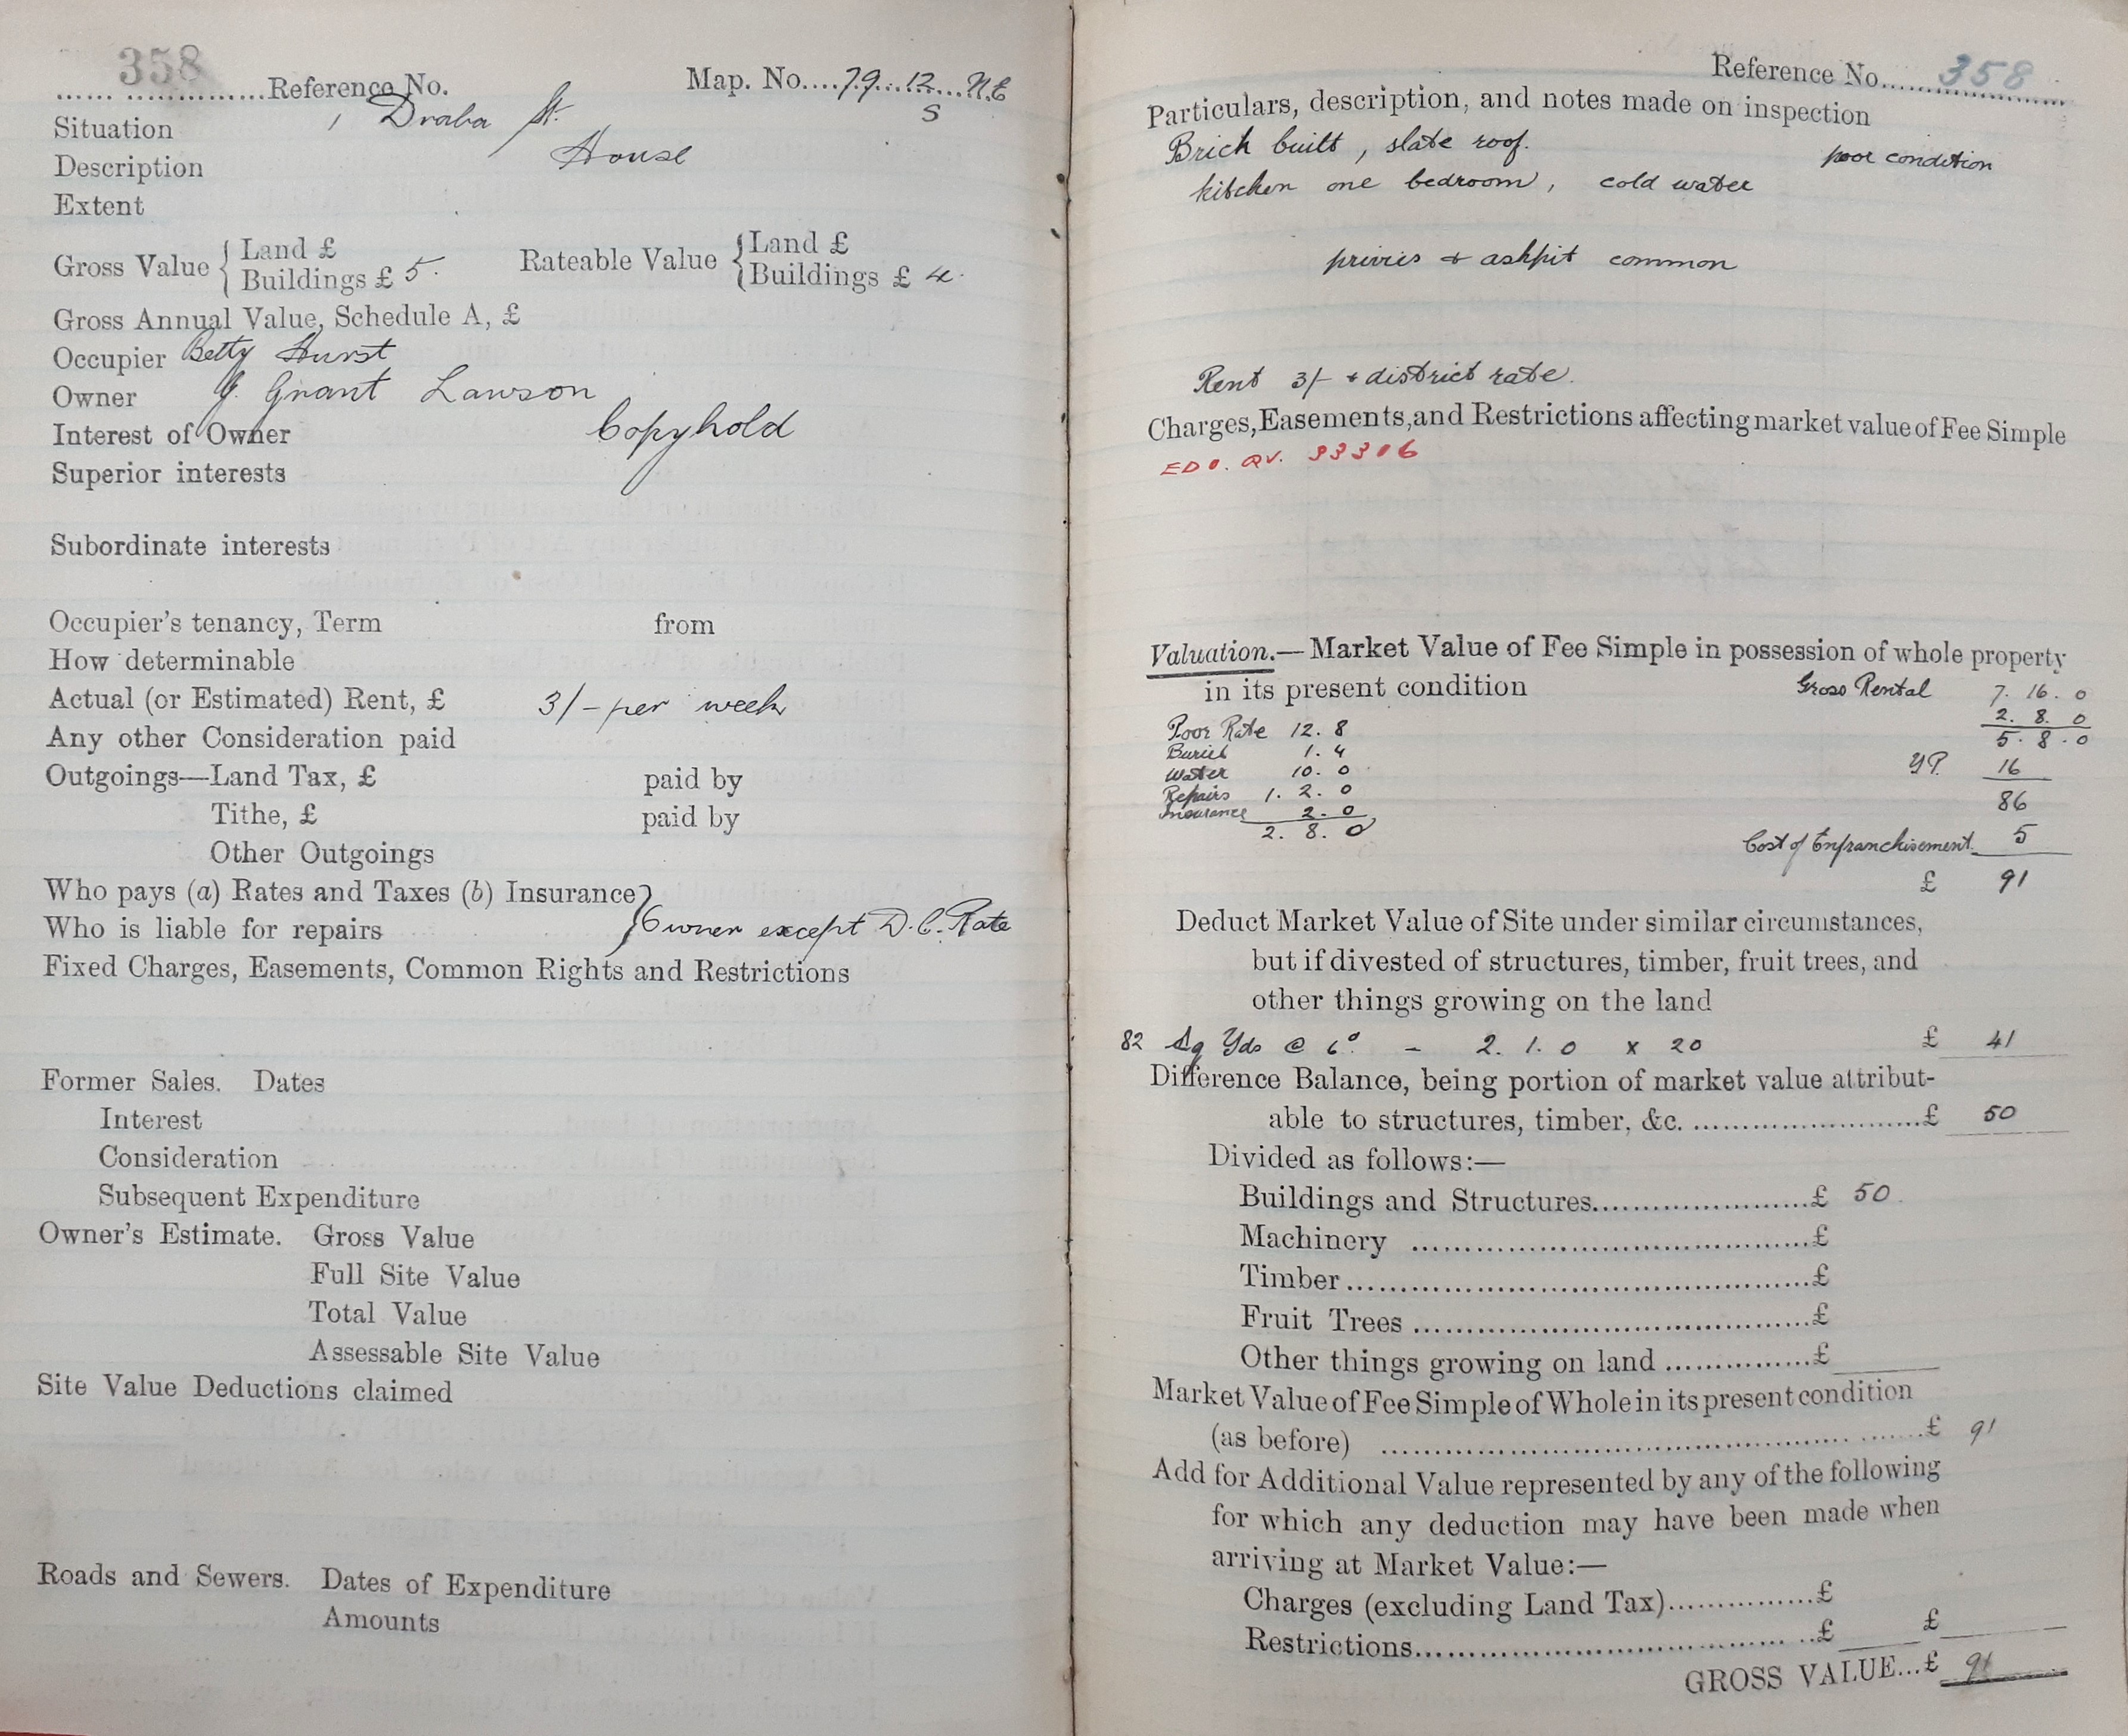 358
Reference No. Map. No....79...12...N.E
S
Situation 1 Draba St.
Description House
Extent
Gross Value { Land £ Rateable Value { Land £
Buildings £ 5. Buildings £ 4.
Gross Annual Value, Schedule A, £
Occupier Betty Hurst
Owner J. Grant Lawson
Interest of Owner Copyhold
Superior interests
Subordinate interests
Occupier's tenancy, Term from
How determinable
Actual (or Estimated) Rent, £ 3/- per week
Any other Consideration paid
Outgoings—Land Tax, £ paid by
Tithe, £ paid by
Other Outgoings
Who pays (a) Rates and Taxes (b) Insurance }
Who is liable for repairs } Owner except D.C. Rate
Fixed Charges, Easements, Common Rights and Restrictions
Former Sales. Dates
Interest
Consideration
Subsequent Expenditure
Owner's Estimate. Gross Value
Full Site Value
Total Value
Assessable Site Value
Site Value Deductions claimed
Roads and Sewers. Dates of Expenditure
Amounts
Reference No. 358
Particulars, description, and notes made on inspection
Brick built, slate roof. poor condition
kitchen one bedroom, cold water
privies & ashpit common
Rent 3/- & district rate.
Charges, Easements, and Restrictions affecting market value of Fee Simple
QV. 33316
Valuation.—Market Value of Fee Simple in possession of whole property
in its present condition Gross Rental 7. 16. 0
Poor Rate 12. 8 2. 8. 0
Burial 1. 4 5. 8. 0
Water 10. 0 YP. 16
Repairs 1. 2. 0 86
Insurance 2. 0
2. 8. 0 Cost of Enfranchisement 5
£ 91
Deduct Market Value of Site under similar circumstances,
but if divested of structures, timber, fruit trees, and
other things growing on the land
82 Sq Yds @ 6d. - 2. 1. 0 x 20 £ 41
Difference Balance, being portion of market value attribut-
able to structures, timber, &c. £ 50
Divided as follows:—
Buildings and Structures £ 50.
Machinery £
Timber £
Fruit Trees £
Other things growing on land £
Market Value of Fee Simple of Whole in its present condition
(as before) £ 91
Add for Additional Value represented by any of the following
for which any deduction may have been made when
arriving at Market Value:—
Charges (excluding Land Tax) £
Restrictions £ £
GROSS VALUE...£ 91